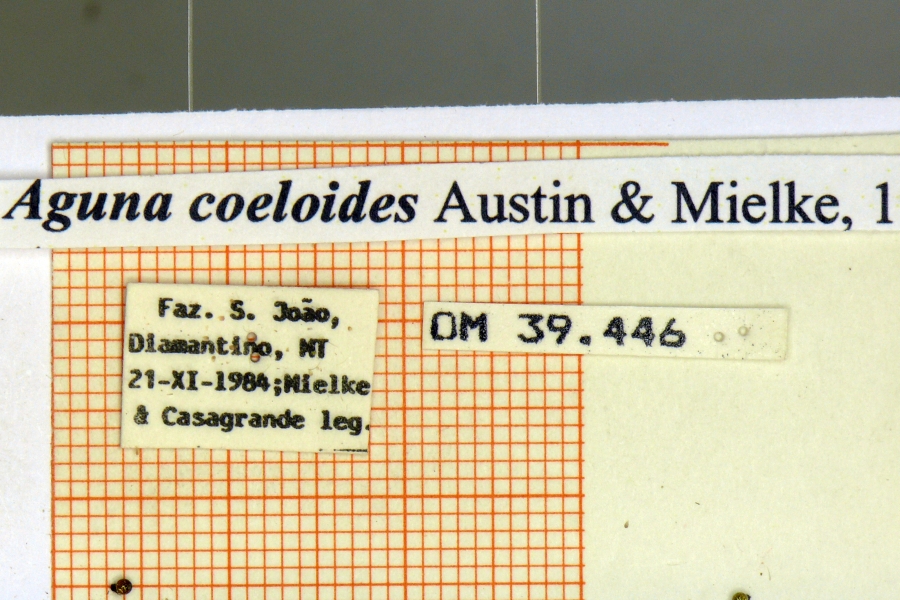 Aguna coeloides Austin & Mielke, 1
Faz. S. João,
Diamantino, MT
21-XI-1984;Mielke
& Casagrande leg.
OM 39.446